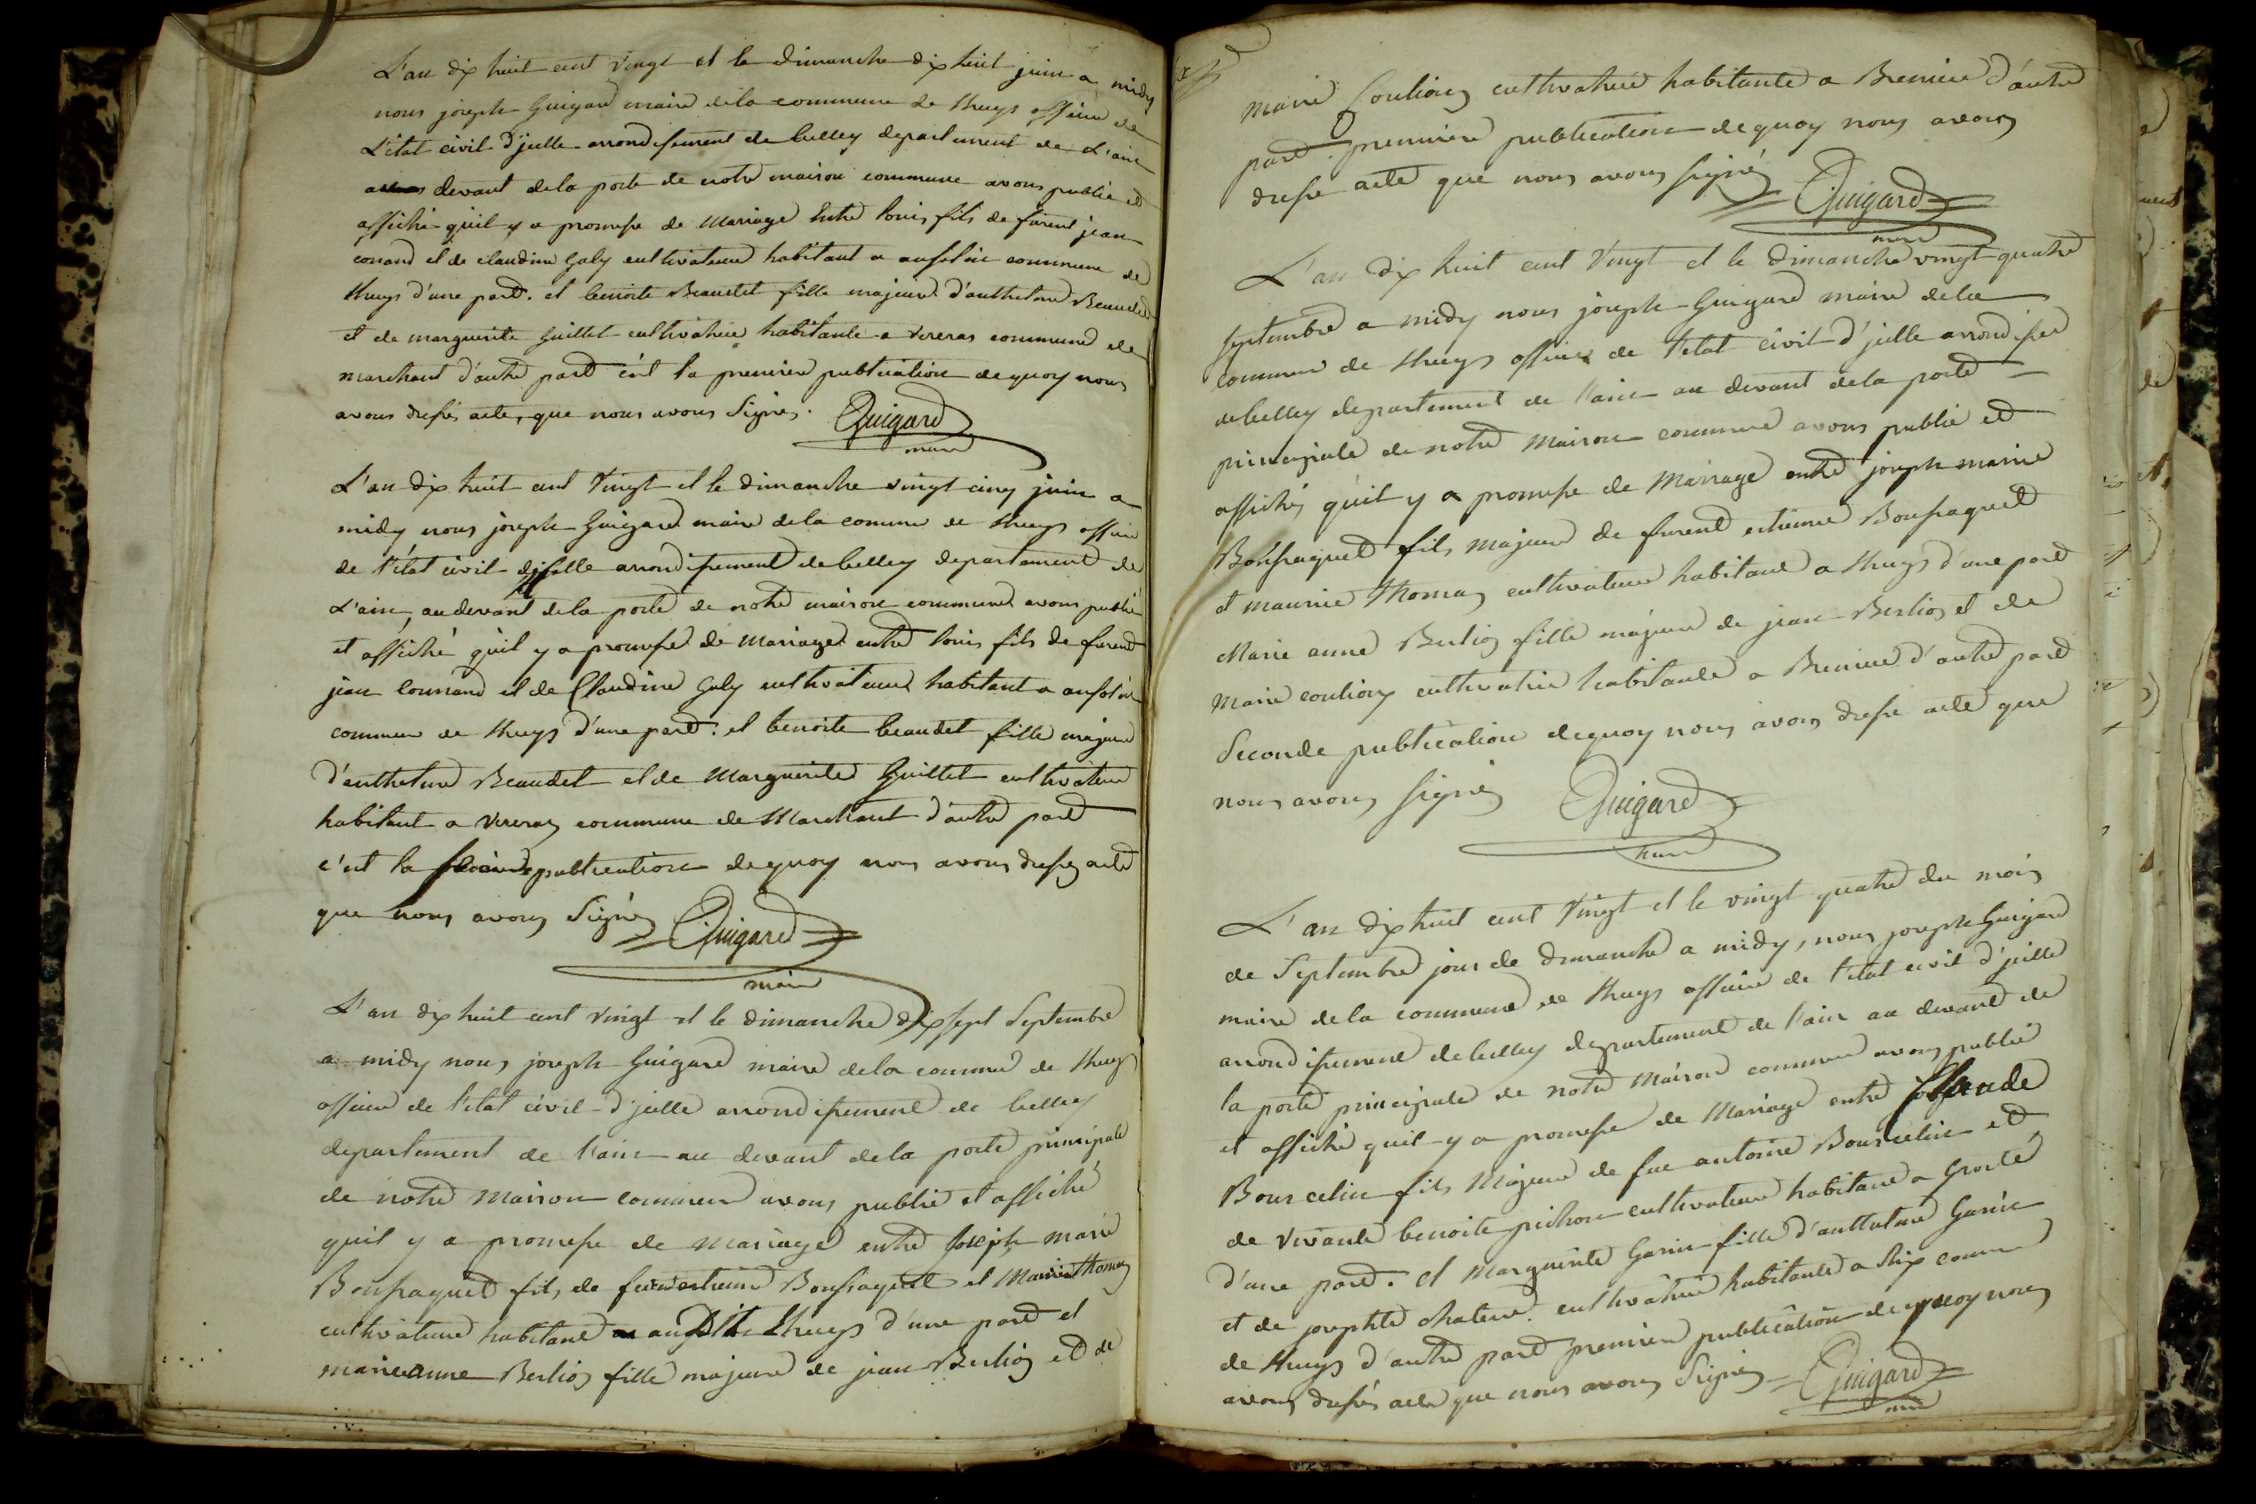 L'an dix huit cent vingt et le dimanche dix huit juin a midy
nous joseph Guigard maire de la commune de Lhuys officier de
L'état civil d'jcelle arrondissement de belley departement de L'ain
devant de la porte de notre maison commune avons publié et
affiché qu'il y a promesse de Mariage Entre louis fils de furent jean
conand et de claudine Galy cultivateur habitant a ansolin commune de
Lhuys d'une part. et benoite Beaudet fille majeure d'anthelme Beaudet
et de marguerite Guillet cultivatrice habitante a vereras commune de
marchant d'autre part c'est la premiere publication de quoy nous
avons dressés acte, que nous avons Signés. Guigard
maire
L'an dix huit cent Vingt et le dimanche vingt cinq juin a
midy nous joseph Guigard maire de la comune de Lhuys officier
de l'état civil d'jcelle arrondissement de belley departement de
L'ain, au devant de la porte de notre maison commune avons publié
et affiché qu'il y a promesse de Mariage entre louis fils de furent
jean Connand et de Claudine Galy cultivateur habitant a ansolin
commune de Lhuys d'une part. et benoite beaudet fille majeure
d'anthelme Beaudet et de Marguerite Guillet cultivateur
habitant a vereras commune de Marchant d'autre part
c'est la seconde publication de quoy nous avons dressés acte
que nous avons Signés Guigard
maire
L'an dix huit cent vingt et le dimanche dix sept Septembre
a midy nous joseph Guigard maire de la commune de Lhuys
officier de l'etat civil d'jcelle arrondissement de belley
departement de l'ain au devant de la porte principale
de notre Maison commune avons publié et affiché
qu'il y a promesse de mariage entre Joseph marie
Bonfraquet fils de furent estienne Bonfraquet et Maurice Thomas
cultivateur habitant au Dit Lhuys d'une part et
marie anne Berlioz fille majeure de jean Berlioz et de
marie Coulioux cultivatrice habitante a Brenier d'autre
part. premiere publication de quoy nous avons
dressé acte que nous avons signés Guigard
maire
L'an dix huit cent Vingt et le dimanche vingt quatre
septembre a midy nous joseph Guigard maire de la
commune de Lhuys officier de l'etat civil d'jcelle arrondisse
de belley departement de l'ain au devant de la porte
principale de notre Maison commune avons publié et
affichés qu'il y a promesse de Mariage entre joseph marie
Bonfraquet fils majeur de furent estienne Bonfraquet
et maurice Thomas cultivateur habitant a Lhuys d'une part
Marie anne Berlioz fille majeure de jean Berlioz et de
Marie coulioux cultivatrice habitante a Brenier d'autre part
Seconde publication de quoy nous avons dressé acte que
nous avons signés Guigard
maire
L'an dix huit cent Vingt et le vingt quatre du mois
de Septembre jour de dimanche a midy, nous joseph Guigard
maire de la commune de Lhuys officier de l'etat civil d'jcelle
arrondissement de belley departement de l'ain au devant de
la porte principale de notre Maison commune avons publié
et affiché qu'il y a promesse de Mariage entre Claude
Bourcelin fils Majeur de fue antoine Bourcelin et
de vivante benoite pichon cultivateur habitant a Groslé
d'une part. et Marguerite Garin fille d'anthelme Garin
et de josephte chateur cultivatrice habitante a Rix commune
de Lhuys d'autre part premiere publication de quoy nous
avons dressés acte que nous avons Signés Guigard
maire